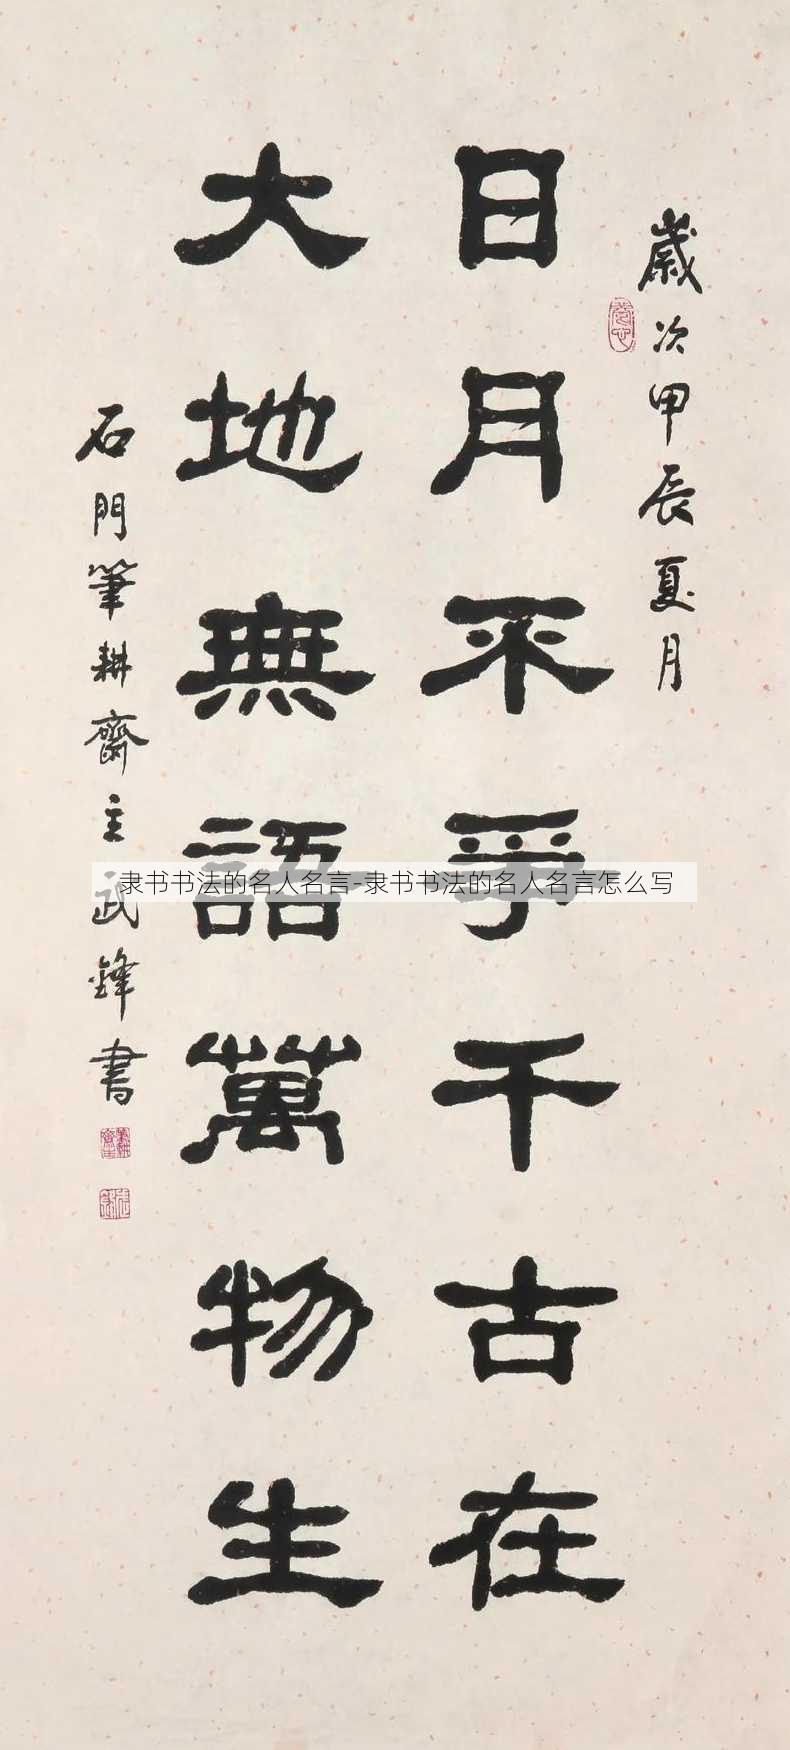 歲次甲辰夏月
日月不爭千古在
大地無語萬物生
石門筆耕齋主武鋒書
隶书书法的名人名言-隶书书法的名人名言怎么写